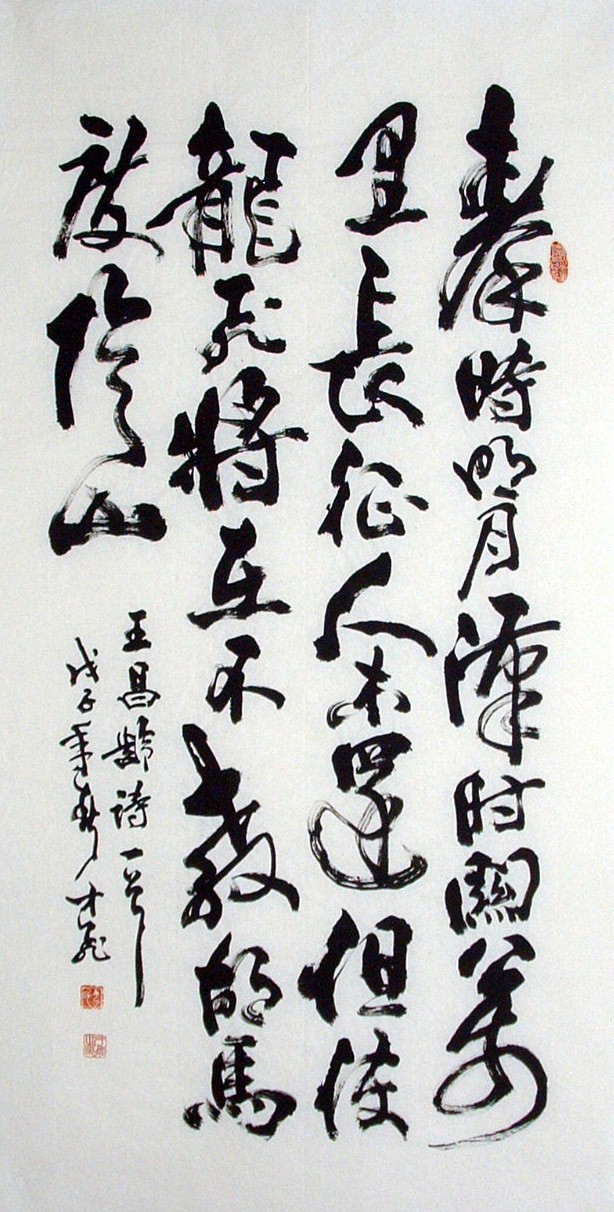 秦時明月漢时關萬
里長征人未還但使
龍飛將在不教胡馬
度陰山
王昌齡詩一首
戊子年